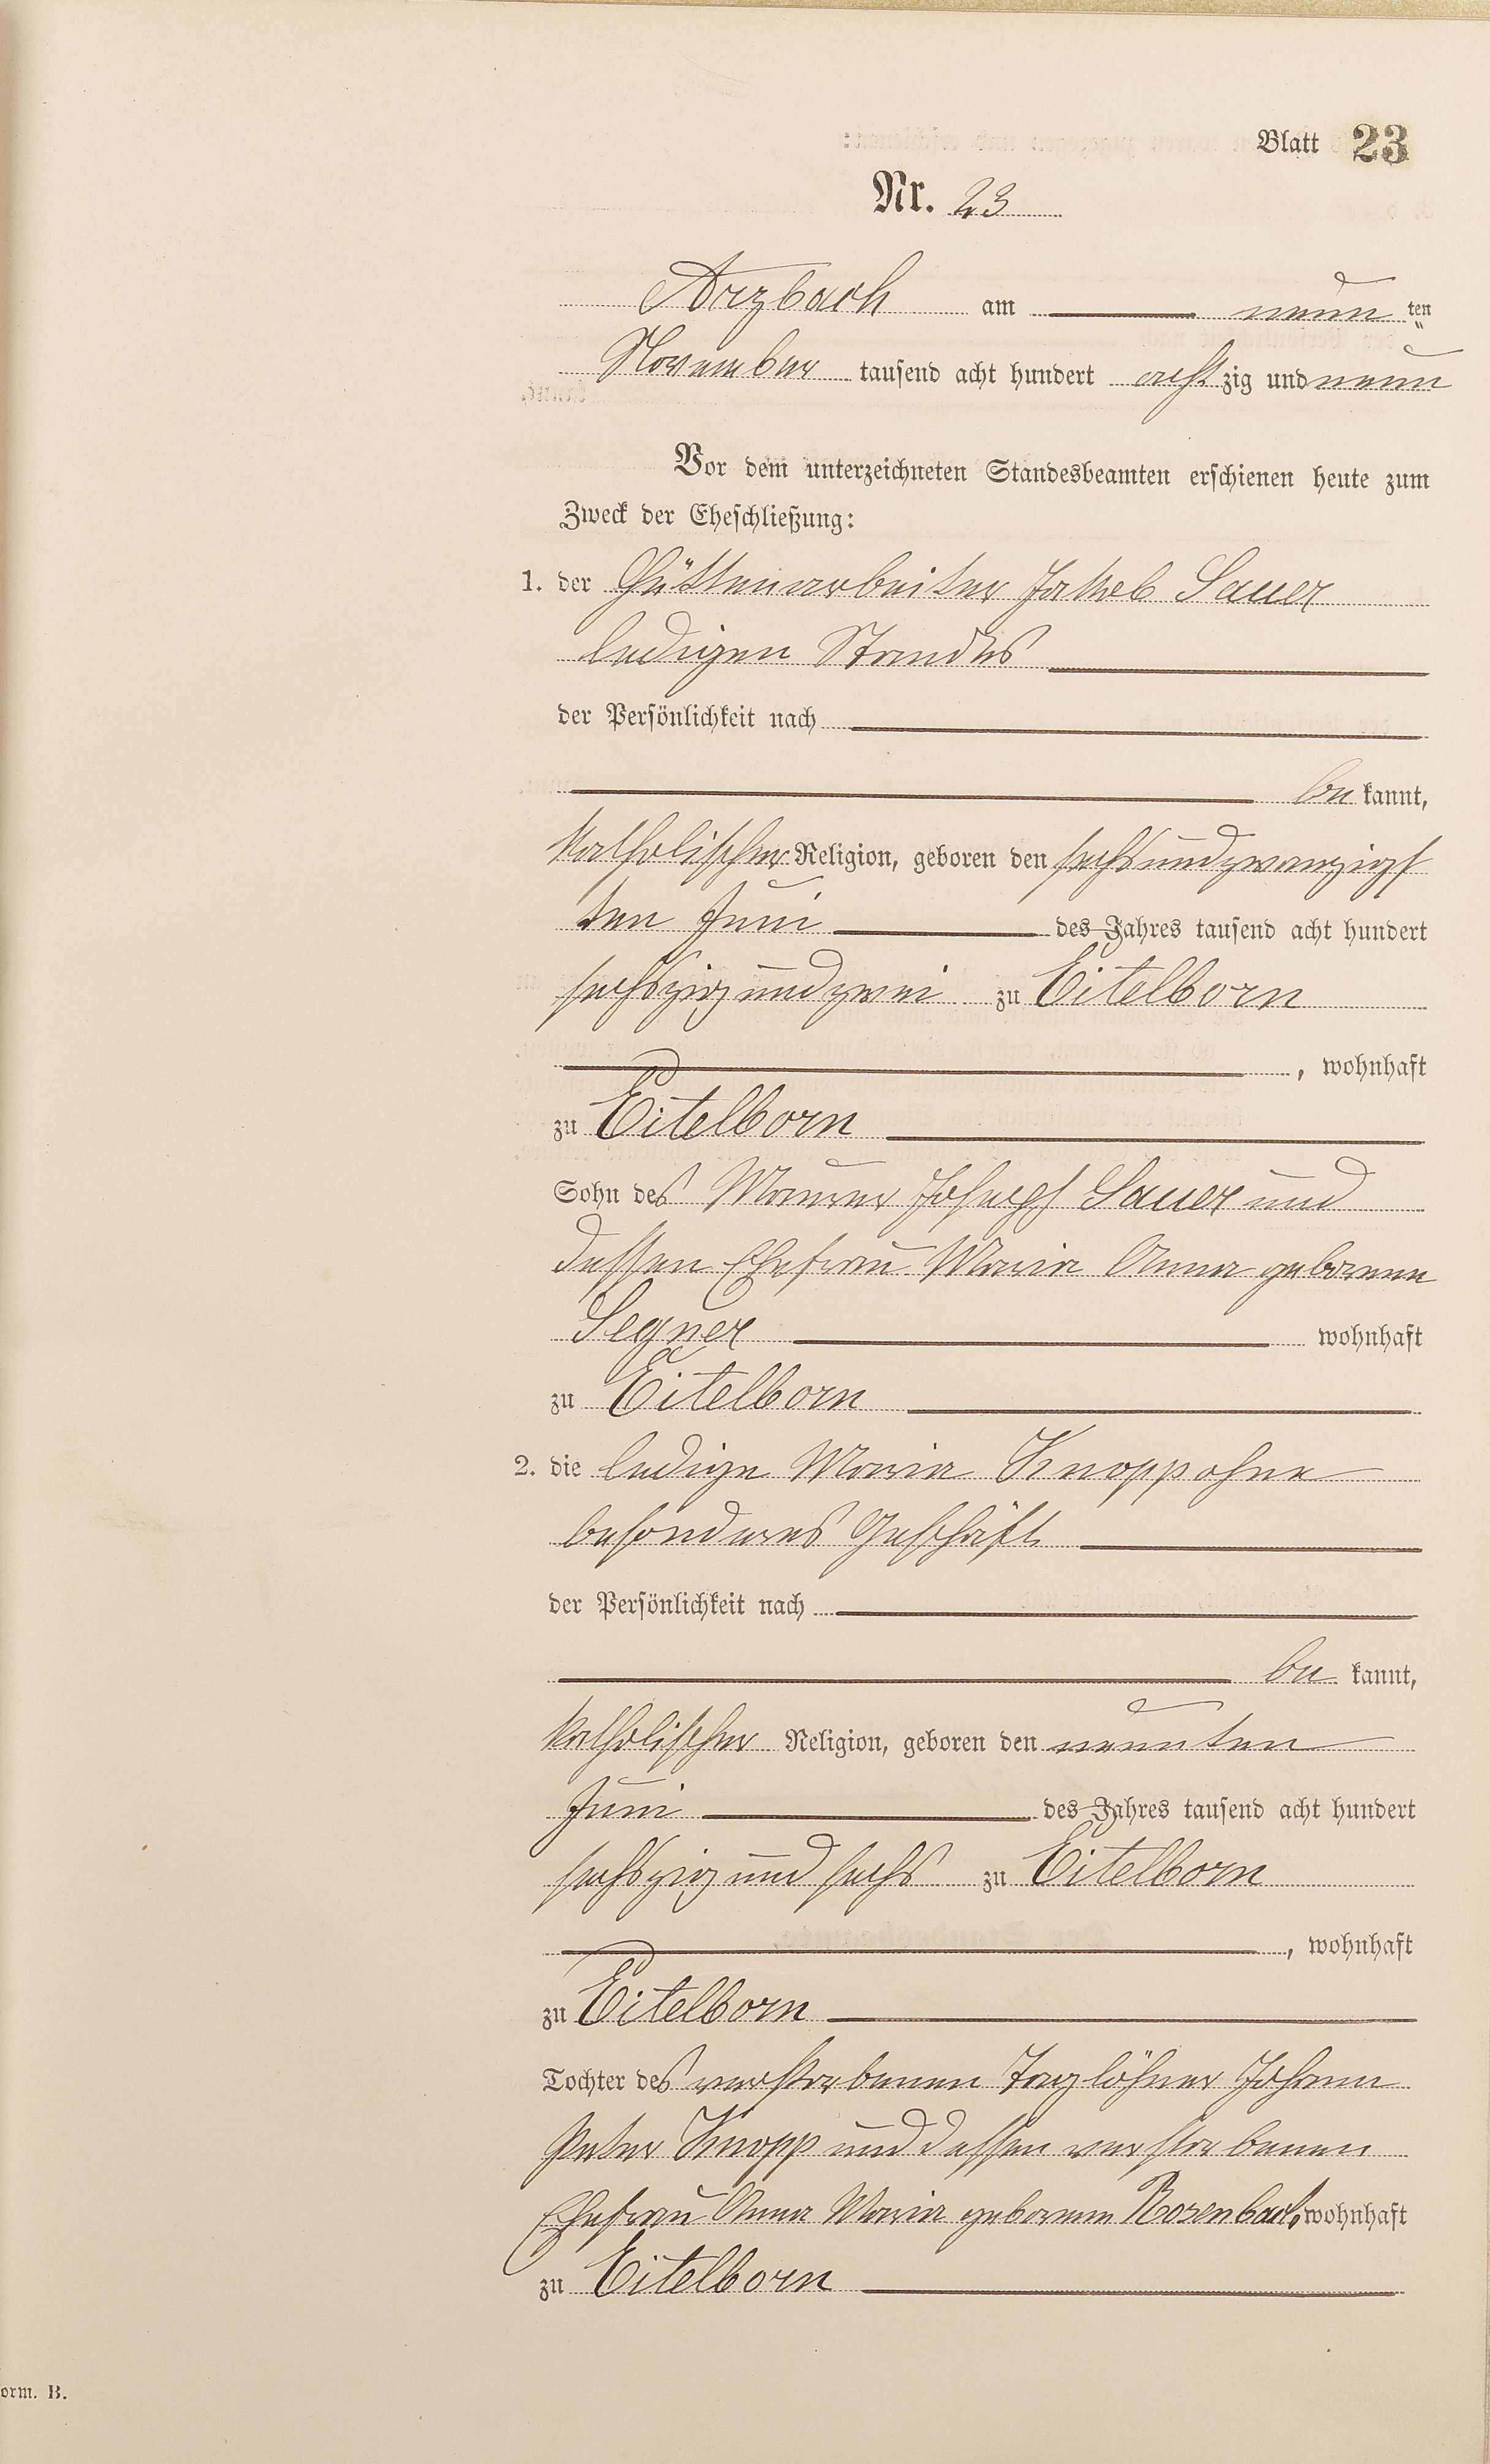 Blatt 23
Nr. 23
Arzbach am neun ten
November tausend acht hundert acht zig und neun
Vor dem unterzeichneten Standesbeamten erschienen heute zum
Zweck der Eheschließung:
1. der Hüttenarbeiter Jakob Sauer
ledigen Standes
der Persönlichkeit nach
be kannt,
katholischer Religion, geboren den sechsundzwanzigs
ten Juni des Jahres tausend acht hundert
sechszig und zwei zu Eitelborn
, wohnhaft
zu Eitelborn
Sohn des Maurer Joseph Sauer und
dessen Ehefrau Maria Anna geborene
Segner wohnhaft
zu Eitelborn
2. die ledige Maria Knopp ohne
besonderes Geschäft
der Persönlichkeit nach
be kannt,
katholischer Religion, geboren den neunten
Juni des Jahres tausend acht hundert
sechszig und sechs zu Eitelborn
, wohnhaft
zu Eitelborn
Tochter des verstorbenen Taglöhner Johann
Peter Knopp und dessen verstorbenen
Ehefrau Anna Maria geborene Rosenbach, wohnhaft
zu Eitelborn
orm. B.